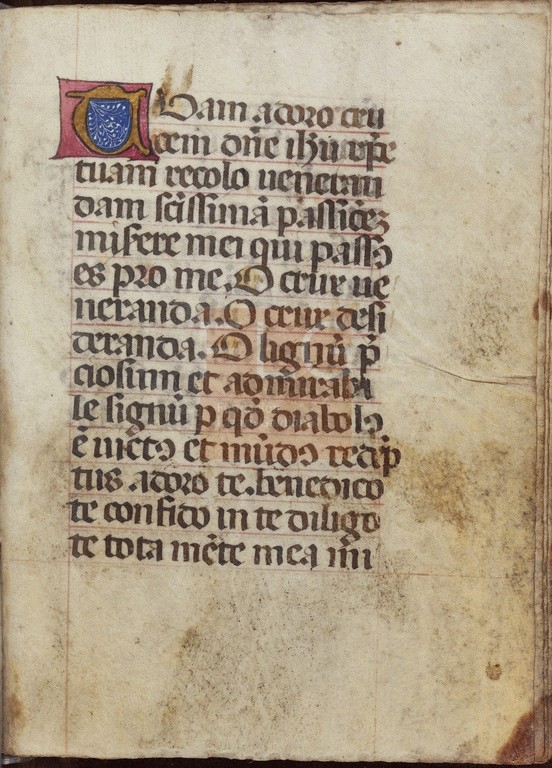 Tuam adoro cru
cem dñe ihũ xp̃e
tuam recolo veneran
dam scĩssimã passiõeȝ
misere mei qui passꝯ
es pro me. O crux ve
neranda. O crux desi
deranda. O lignũ p̃
ciosum et admirabi
le signũ p qȭ diabolꝯ
ẽ victꝯ et mũdꝯ redẽp
tus adoro te. benedico
te confido in te diligo
te tota mẽte mea im